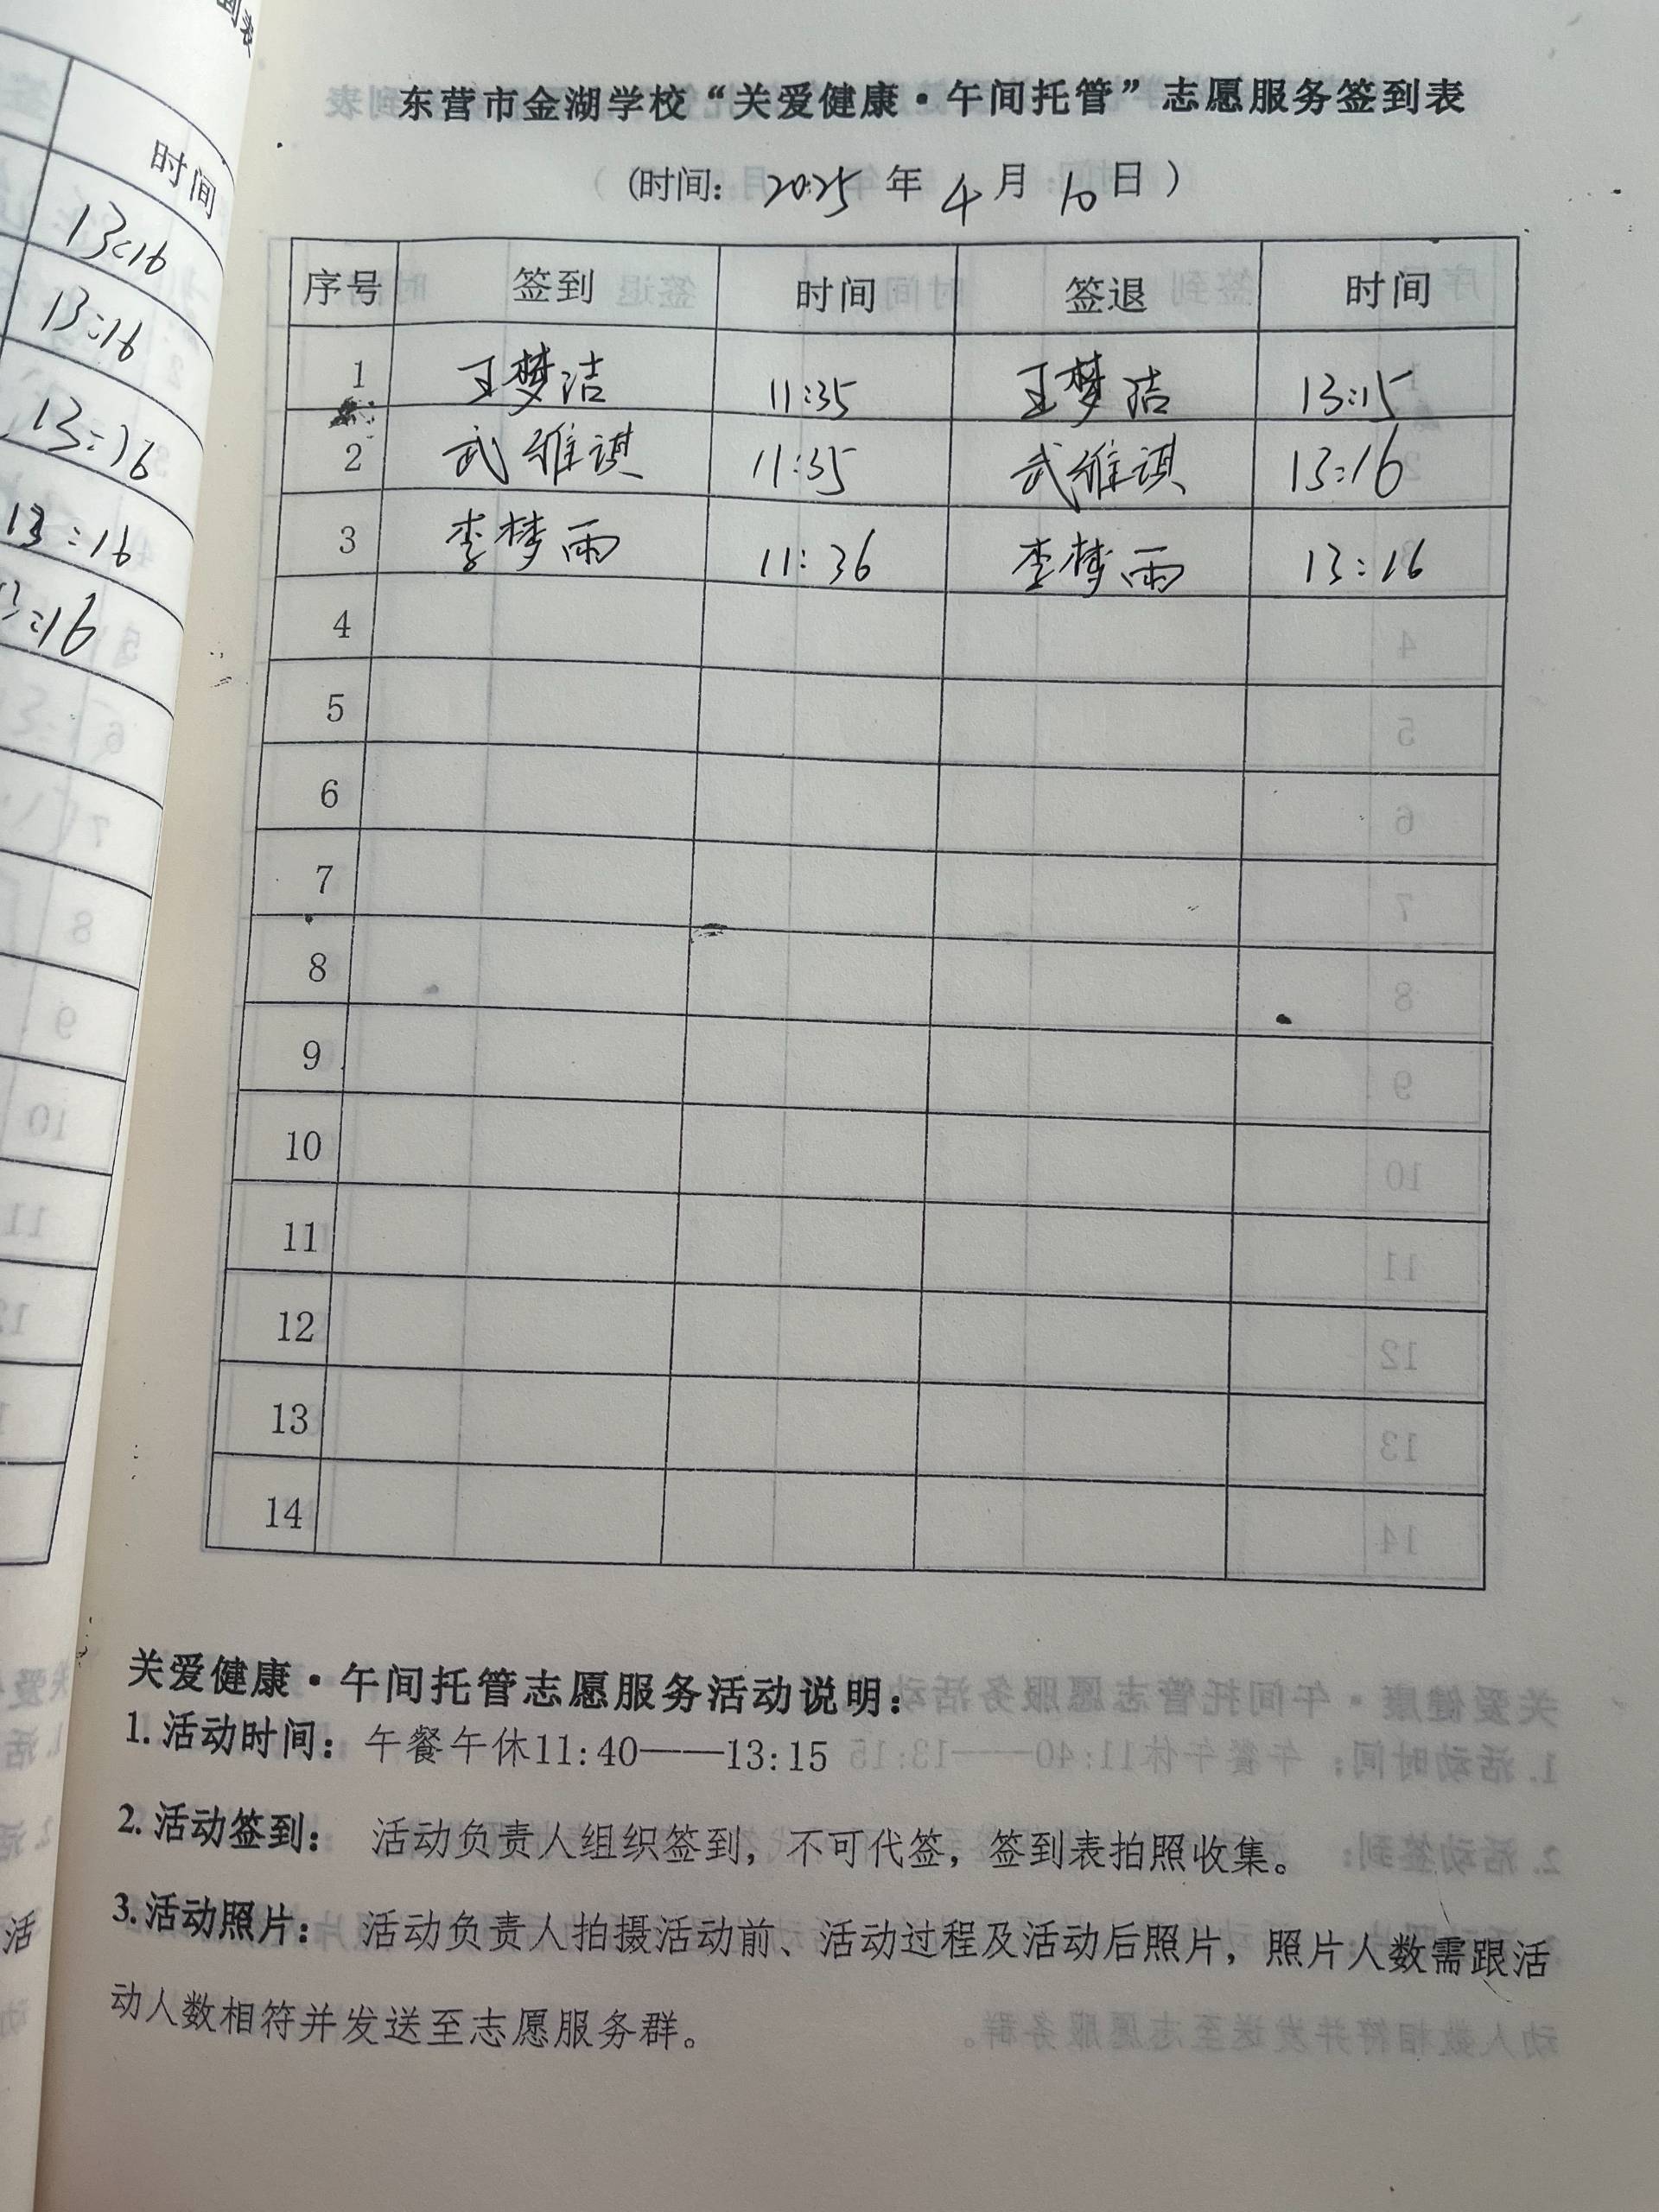 时间
13:16
13:16
13:16
13:16
13:16
活
东营市金湖学校“关爱健康·午间托管”志愿服务签到表
(时间: 2025 年 4 月 10 日 )
序号 签到 时间 签退 时间
1 王梦洁 11:35 王梦洁 13:15
2 武维祺 11:35 武维祺 13:16
3 李梦雨 11:36 李梦雨 13:16
4
5
6
7
8
9
10
11
12
13
14
关爱健康·午间托管志愿服务活动说明:
1.活动时间: 午餐午休11:40——13:15
2.活动签到: 活动负责人组织签到，不可代签，签到表拍照收集。
3.活动照片: 活动负责人拍摄活动前、活动过程及活动后照片，照片人数需跟活
动人数相符并发送至志愿服务群。